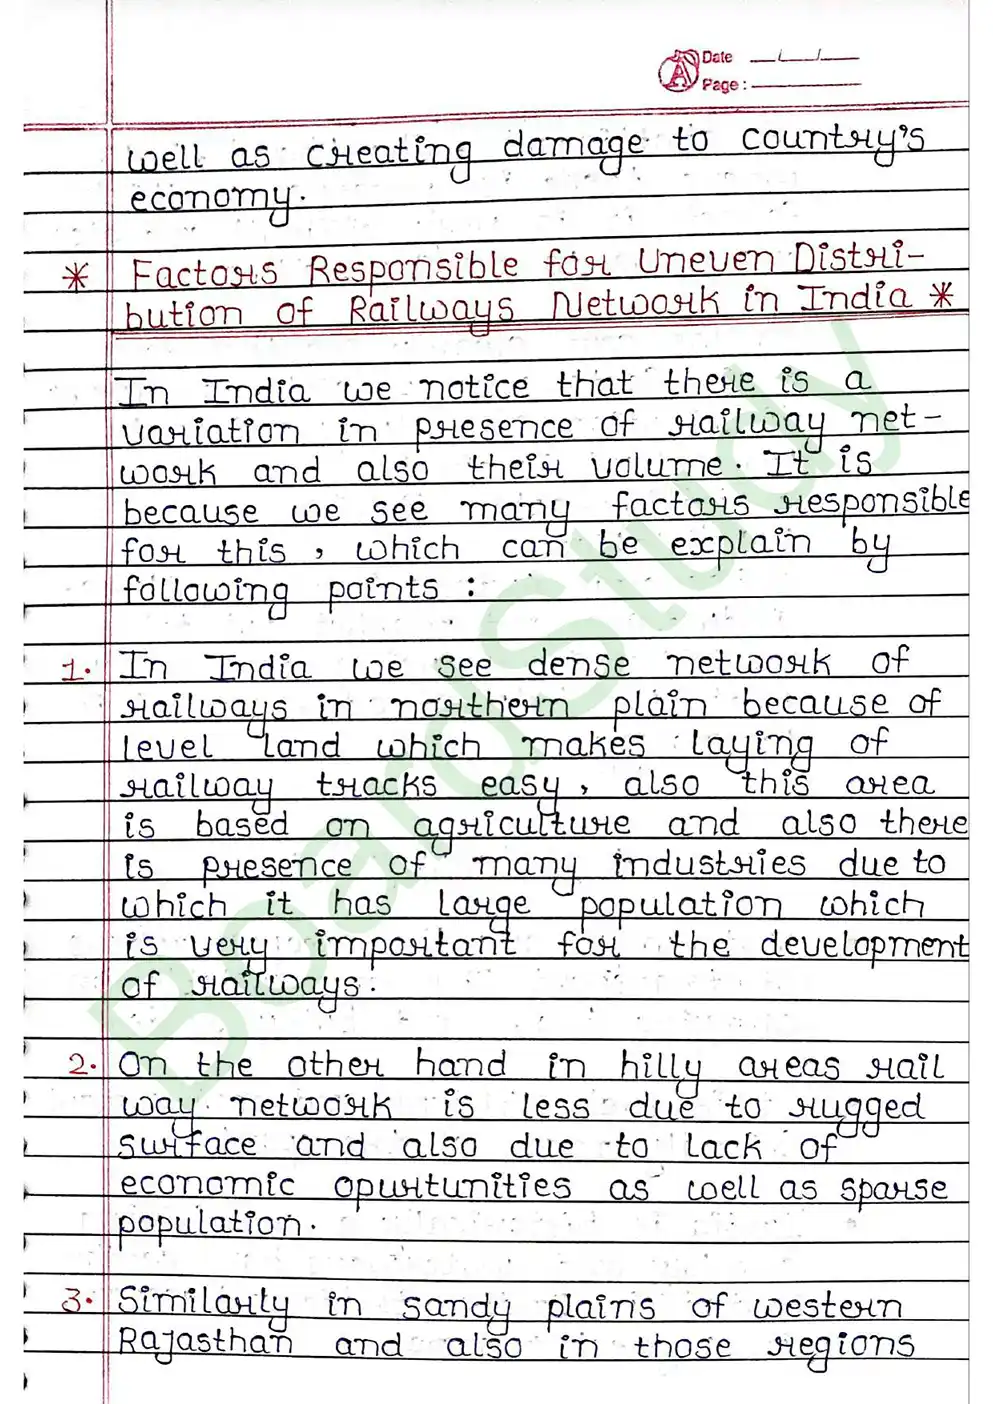 Date __/__/__
Page :
well as creating damage to country's
economy.
* Factors Responsible for Uneven Distri-
bution of Railways Network in India *
In India we notice that there is a
variation in presence of railway net-
work and also their volume. It is
because we see many factors responsible
for this, which can be explain by
following points :
1. In India we see dense network of
railways in northern plain because of
level land which makes laying of
railway tracks easy, also this area
is based on agriculture and also there
is presence of many industries due to
which it has large population which
is very important for the development
of railways.
2. On the other hand in hilly areas rail
way network is less due to rugged
surface and also due to lack of
economic opurtunities as well as sparse
population.
3. Similarly in sandy plains of western
Rajasthan and also in those regions
BoardStudy